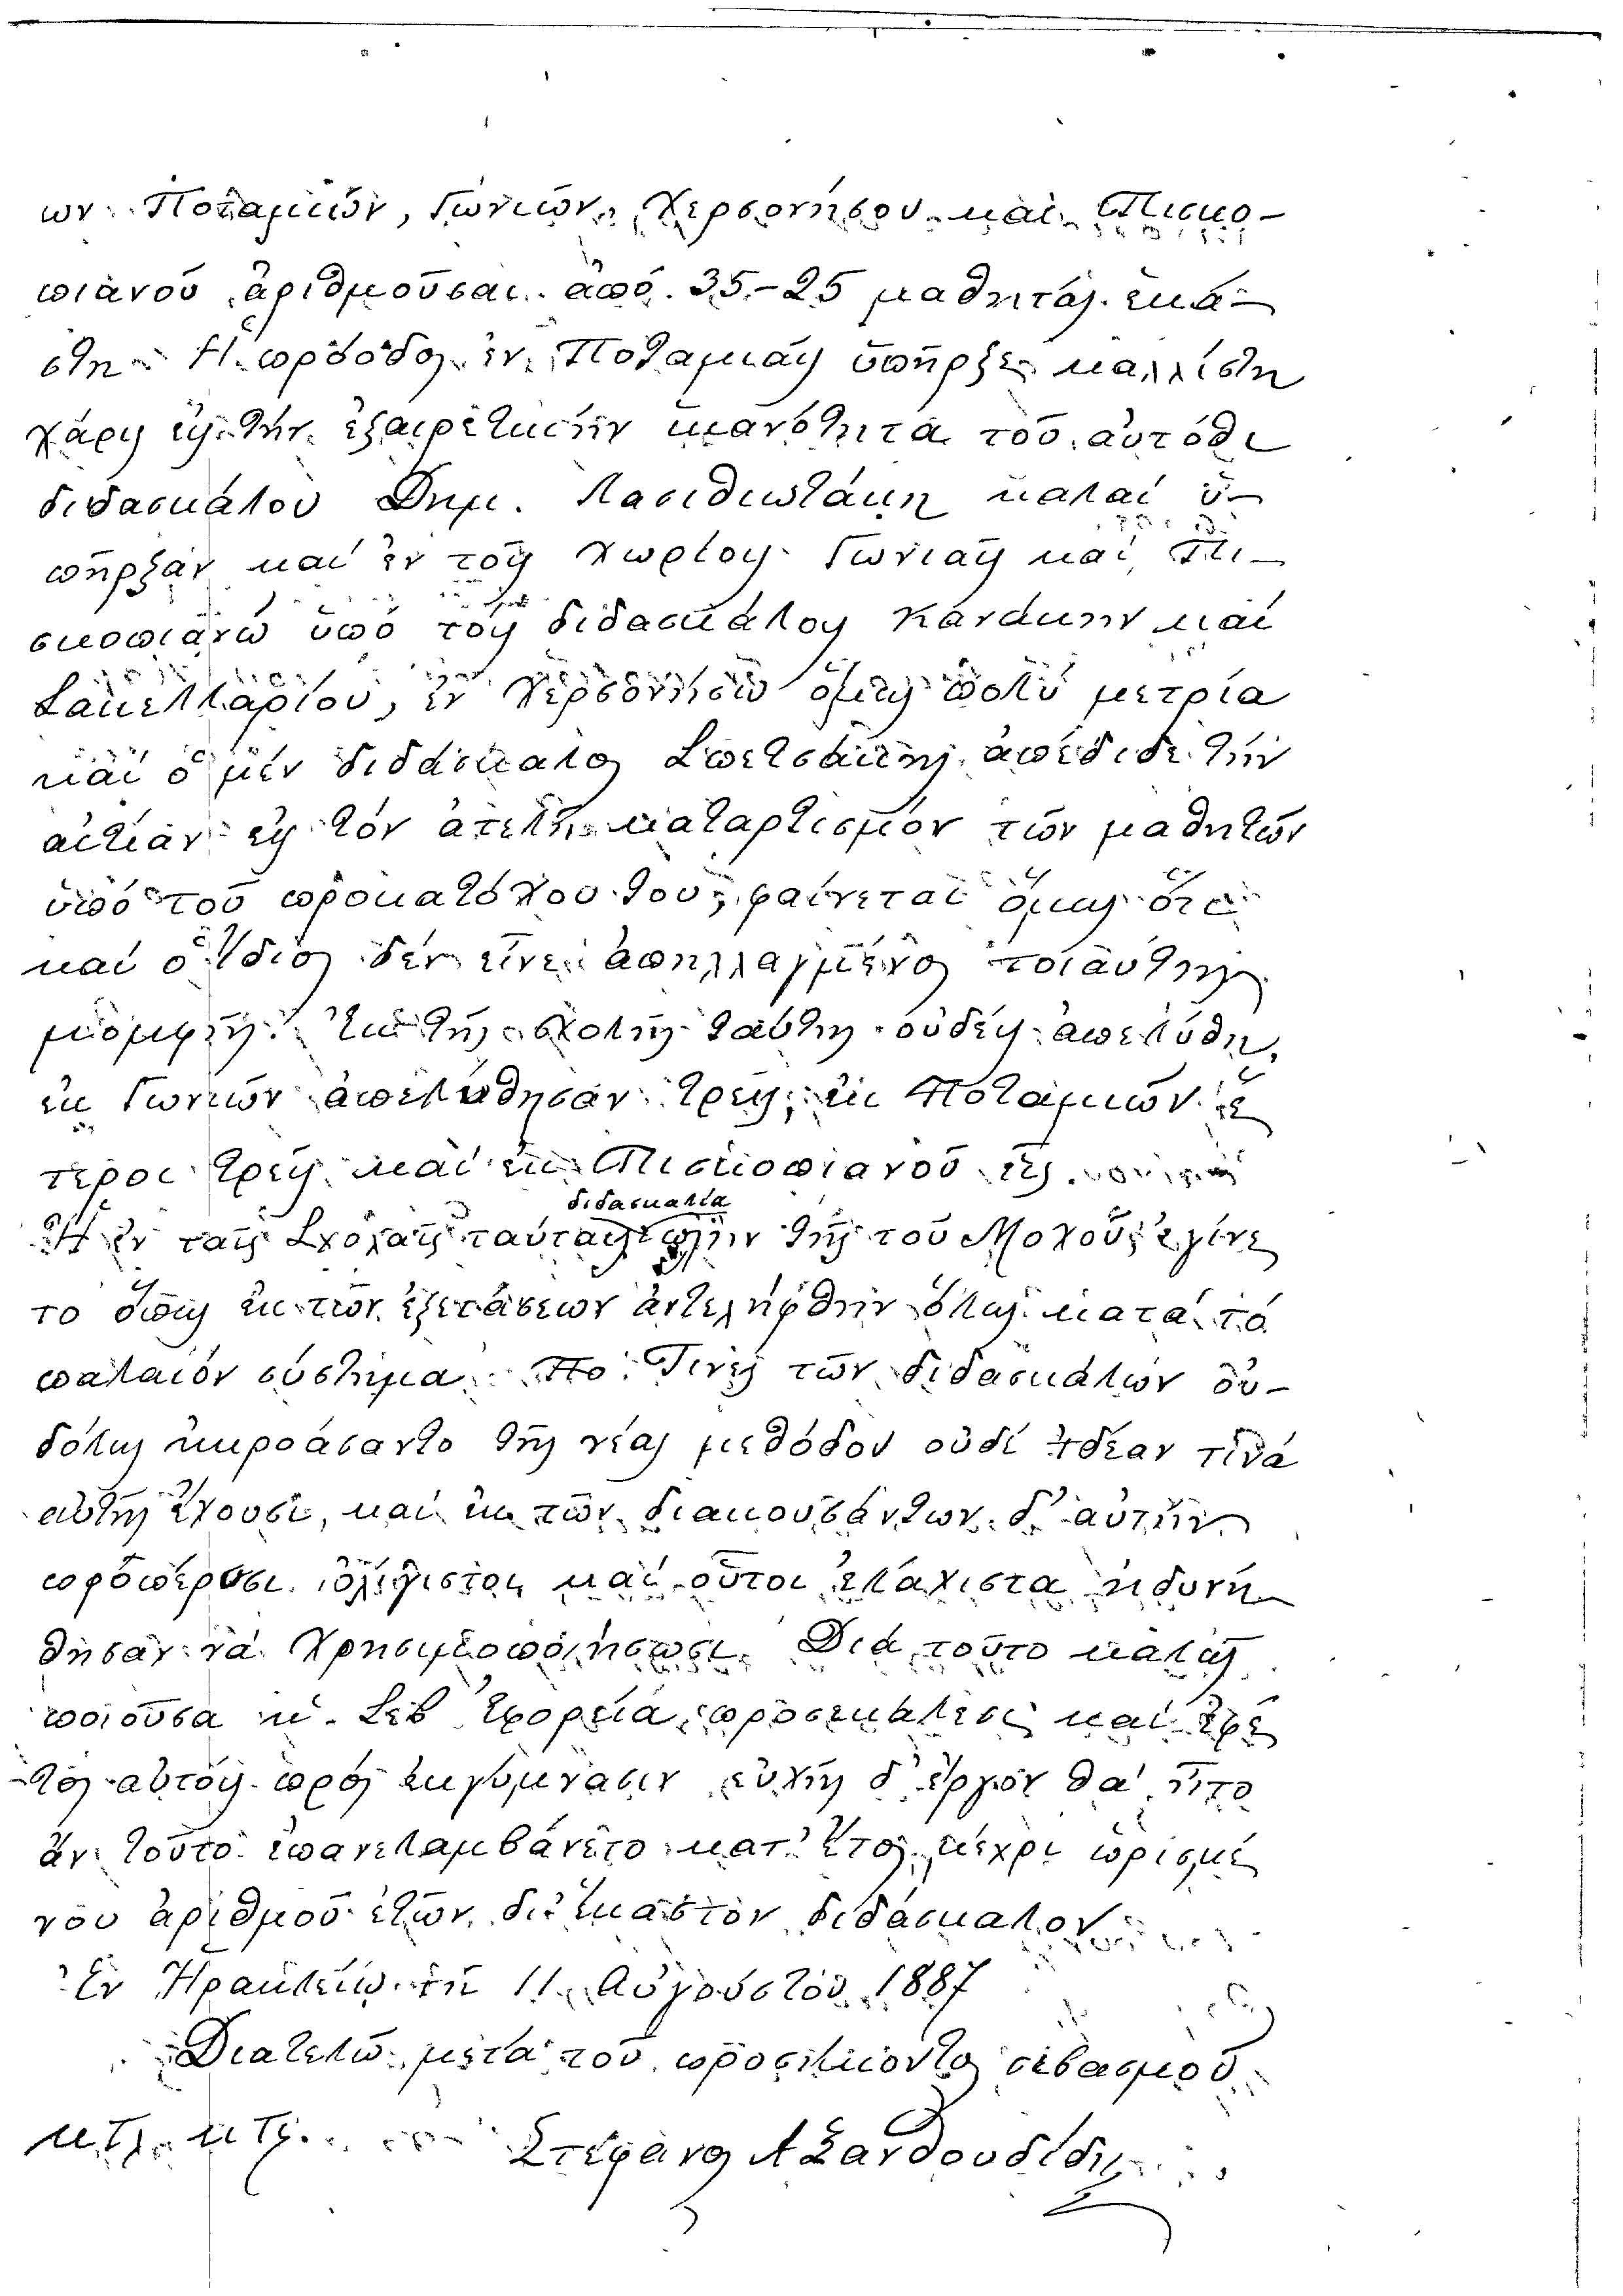 ων Ποταμιῶν, Γωνιῶν, Χερσονήσου καὶ Πισκο-
πιανοῦ ἀριθμοῦσαι ἀπό 35-25 μαθητάς ἑκά-
στη. Ἡ πρόοδος ἐν Ποταμιαῖς ὑπῆρξε καλλίστη
χάρις εἰς τήν ἐξαιρετικήν ἱκανότητα τοῦ αὐτόθι
διδασκάλου Δημ. Λασιθιωτάκη καλαί ὑ-
πῆρξαν καί ἐν τοῖς χωρίοις Γωνιαῖς καί Πι-
σκοπιανῷ ὑπό τούς διδασκάλους Κανάκην καί
Σακελλαρίου, ἐν Χερσονήσῳ ὅμως πολύ μετρία
καί ὁ μέν διδάσκαλος Σπετσάκης ἀπέδιδε τήν
αἰτίαν εἰς τόν ἀτελῆ καταρτισμόν τῶν μαθητῶν
ὑπό τοῦ προκατόχου του, φαίνεται ὅμως ὅτι
καί ὁ ἴδιος δέν εἶνε ἀπηλλαγμένος τοιαύτης
μομφῆς. Ἐκ τῆς σχολῆς ταύτης οὐδείς ἀπελύθη,
ἐκ Γωνιῶν ἀπελύθησαν τρεῖς, ἐκ Ποταμιῶν ἕ
τεροι τρεῖς καί ἐκ Πισκοπιανοῦ εἷς
διδασκαλία
Ἡ ἐν ταῖς Σχολαῖς ταύταις πλήν τῆς τοῦ Μοχοῦ, ἐγίνε
το ὅπως ἐκ τῶν ἐξετάσεων ἀντελήφθην ὅλως κατά τό
παλαιόν σύστημα. Πο. Τινές τῶν διδασκάλων οὐ-
δόλως ἠκροάσαντο τῆς νέας μεθόδου οὐδέ ἰδέαν τινά
αὐτῆς ἔχουσι, καί ἐκ τῶν διακουσάντων δ' αὐτήν
πρόπερυσι ὀλίγιστοι καί οὗτοι ἐλάχιστα ἠδυνή
θησαν νά χρησιμοποιήσωσι. Διά τοῦτο καλῶς
ποιοῦσα ἡ Σεβ Ἐφορεία προσεκάλεσε καί ἐφέ
τος αὐτούς πρός ἐκγύμνασιν εὐχῆς δ' ἔργον θά ἦτο
ἄν τοῦτο ἐπανελαμβάνετο κατ' ἔτος μέχρι ὡρισμέ
νου ἀριθμοῦ ἐτῶν δι' ἕκαστον διδάσκαλον
Ἐν Ἡρακλείῳ τῇ 11 Αὐγούστου 1887
Διατελῶ μετά τοῦ προσήκοντος σεβασμοῦ
κτλ κτλ. Στέφανος Α Ξανθουδίδης